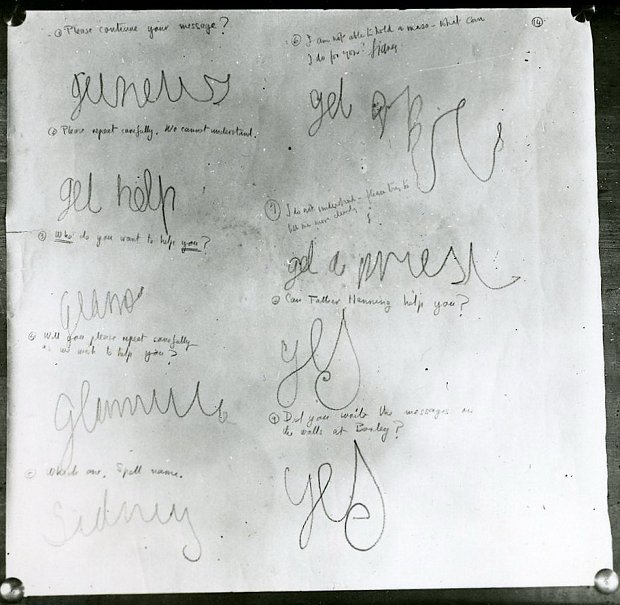 ① Please continue your message?
② Please repeat carefully. We cannot understand.
get help
③ Who do you want to help you?
④ Will you please repeat carefully
as we wish to help you?
⑤ Which one. Spell name.
Sidney
⑭
⑥ I am not able to hold a mass – what can
I do for you? Sidney
get
⑦ I do not understand – please try to
tell me more clearly.
get a priest
⑧ Can Father Henning help you?
yes
⑨ Did you write the messages on
the walls at Borley?
yes